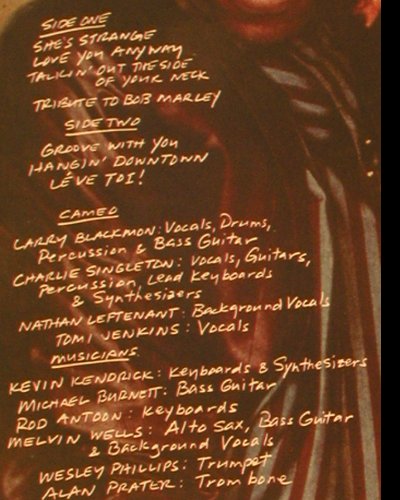 SIDE ONE
SHE'S STRANGE
LOVE YOU ANYWAY
TALKIN' OUT THE SIDE
OF YOUR NECK
TRIBUTE TO BOB MARLEY
SIDE TWO
GROOVE WITH YOU
HANGIN' DOWNTOWN
LÈVE TOI!
CAMEO
LARRY BLACKMON: Vocals, Drums,
Percussion & Bass Guitar
CHARLIE SINGLETON: Vocals, Guitars,
Percussion, Lead Keyboards
& Synthesizers
NATHAN LEFTENANT: Background Vocals
TOMI JENKINS: Vocals
MUSICIANS
KEVIN KENDRICK: Keyboards & Synthesizers
MICHAEL BURNETT: Bass Guitar
ROD ANTOON: Keyboards
MELVIN WELLS: Alto Sax, Bass Guitar
& Background Vocals
WESLEY PHILLIPS: Trumpet
ALAN PRATER: Trombone